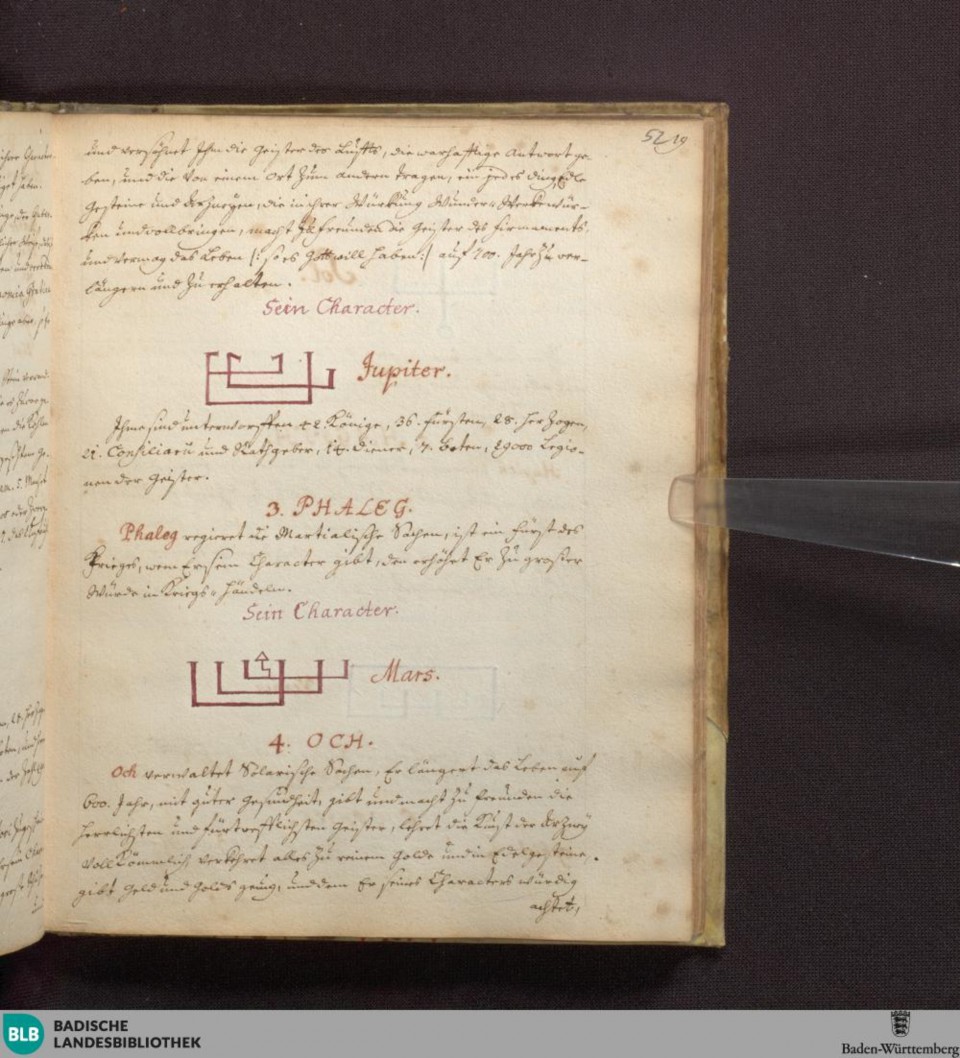 52 19
und versöhnet Ihm die Geister des Luffts, die warhafftige Antwort ge-
ben, und die von einem Ort zum andern tragen, ein jedes ding, Edle
Gesteine und Artzneyen, die in ihrer Würckung Wunder-Werke wür-
ken und vollbringen, macht zu freunde die Geister des Firmaments,
und vermag das Leben /: so es Gott will haben :/ auf 700. Jahr zu ver-
längern und zu erhalten.
Sein Character.
Jupiter.
Ihme sind unterworffen 42. Könige, 36. Fürsten, 28. Herzogen,
21. Consiliarii und Rathgeber, 14. Diener, 7. Boten, 29000 Legio-
nen der Geister.
3. PHALEG.
Phaleg regieret die Martialische Sachen, ist ein Fürst des
Krieges, wem Er sein Character gibt, den erhöhet Er zu grosser
Würde in Kriegs-Händeln.
Sein Character.
Mars.
4. OCH.
Och verwaltet Solarische Sachen, Er längert das Leben auf
600. Jahr, mit guter Gesundheit, gibt und macht zu Freunden die
herrlichsten und fürtrefflichsten Geister, lehret die Kunst der Artzney
vollkömmlich verkehret alles zu reinem Golde und in Edelgesteine,
gibt Geld und Golds genug, und dem Er seines Characters würdig
achtet,
BLB
BADISCHE
LANDESBIBLIOTHEK
Baden-Württemberg